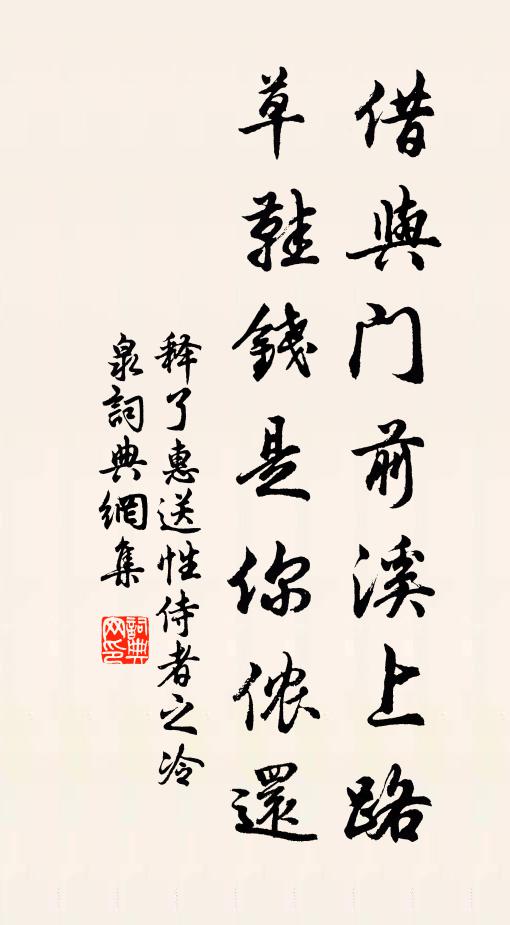 借與门前溪上路
草鞋錢是你侬還
释了惠送性侍者之冷
泉詞典網集
詞典
网印